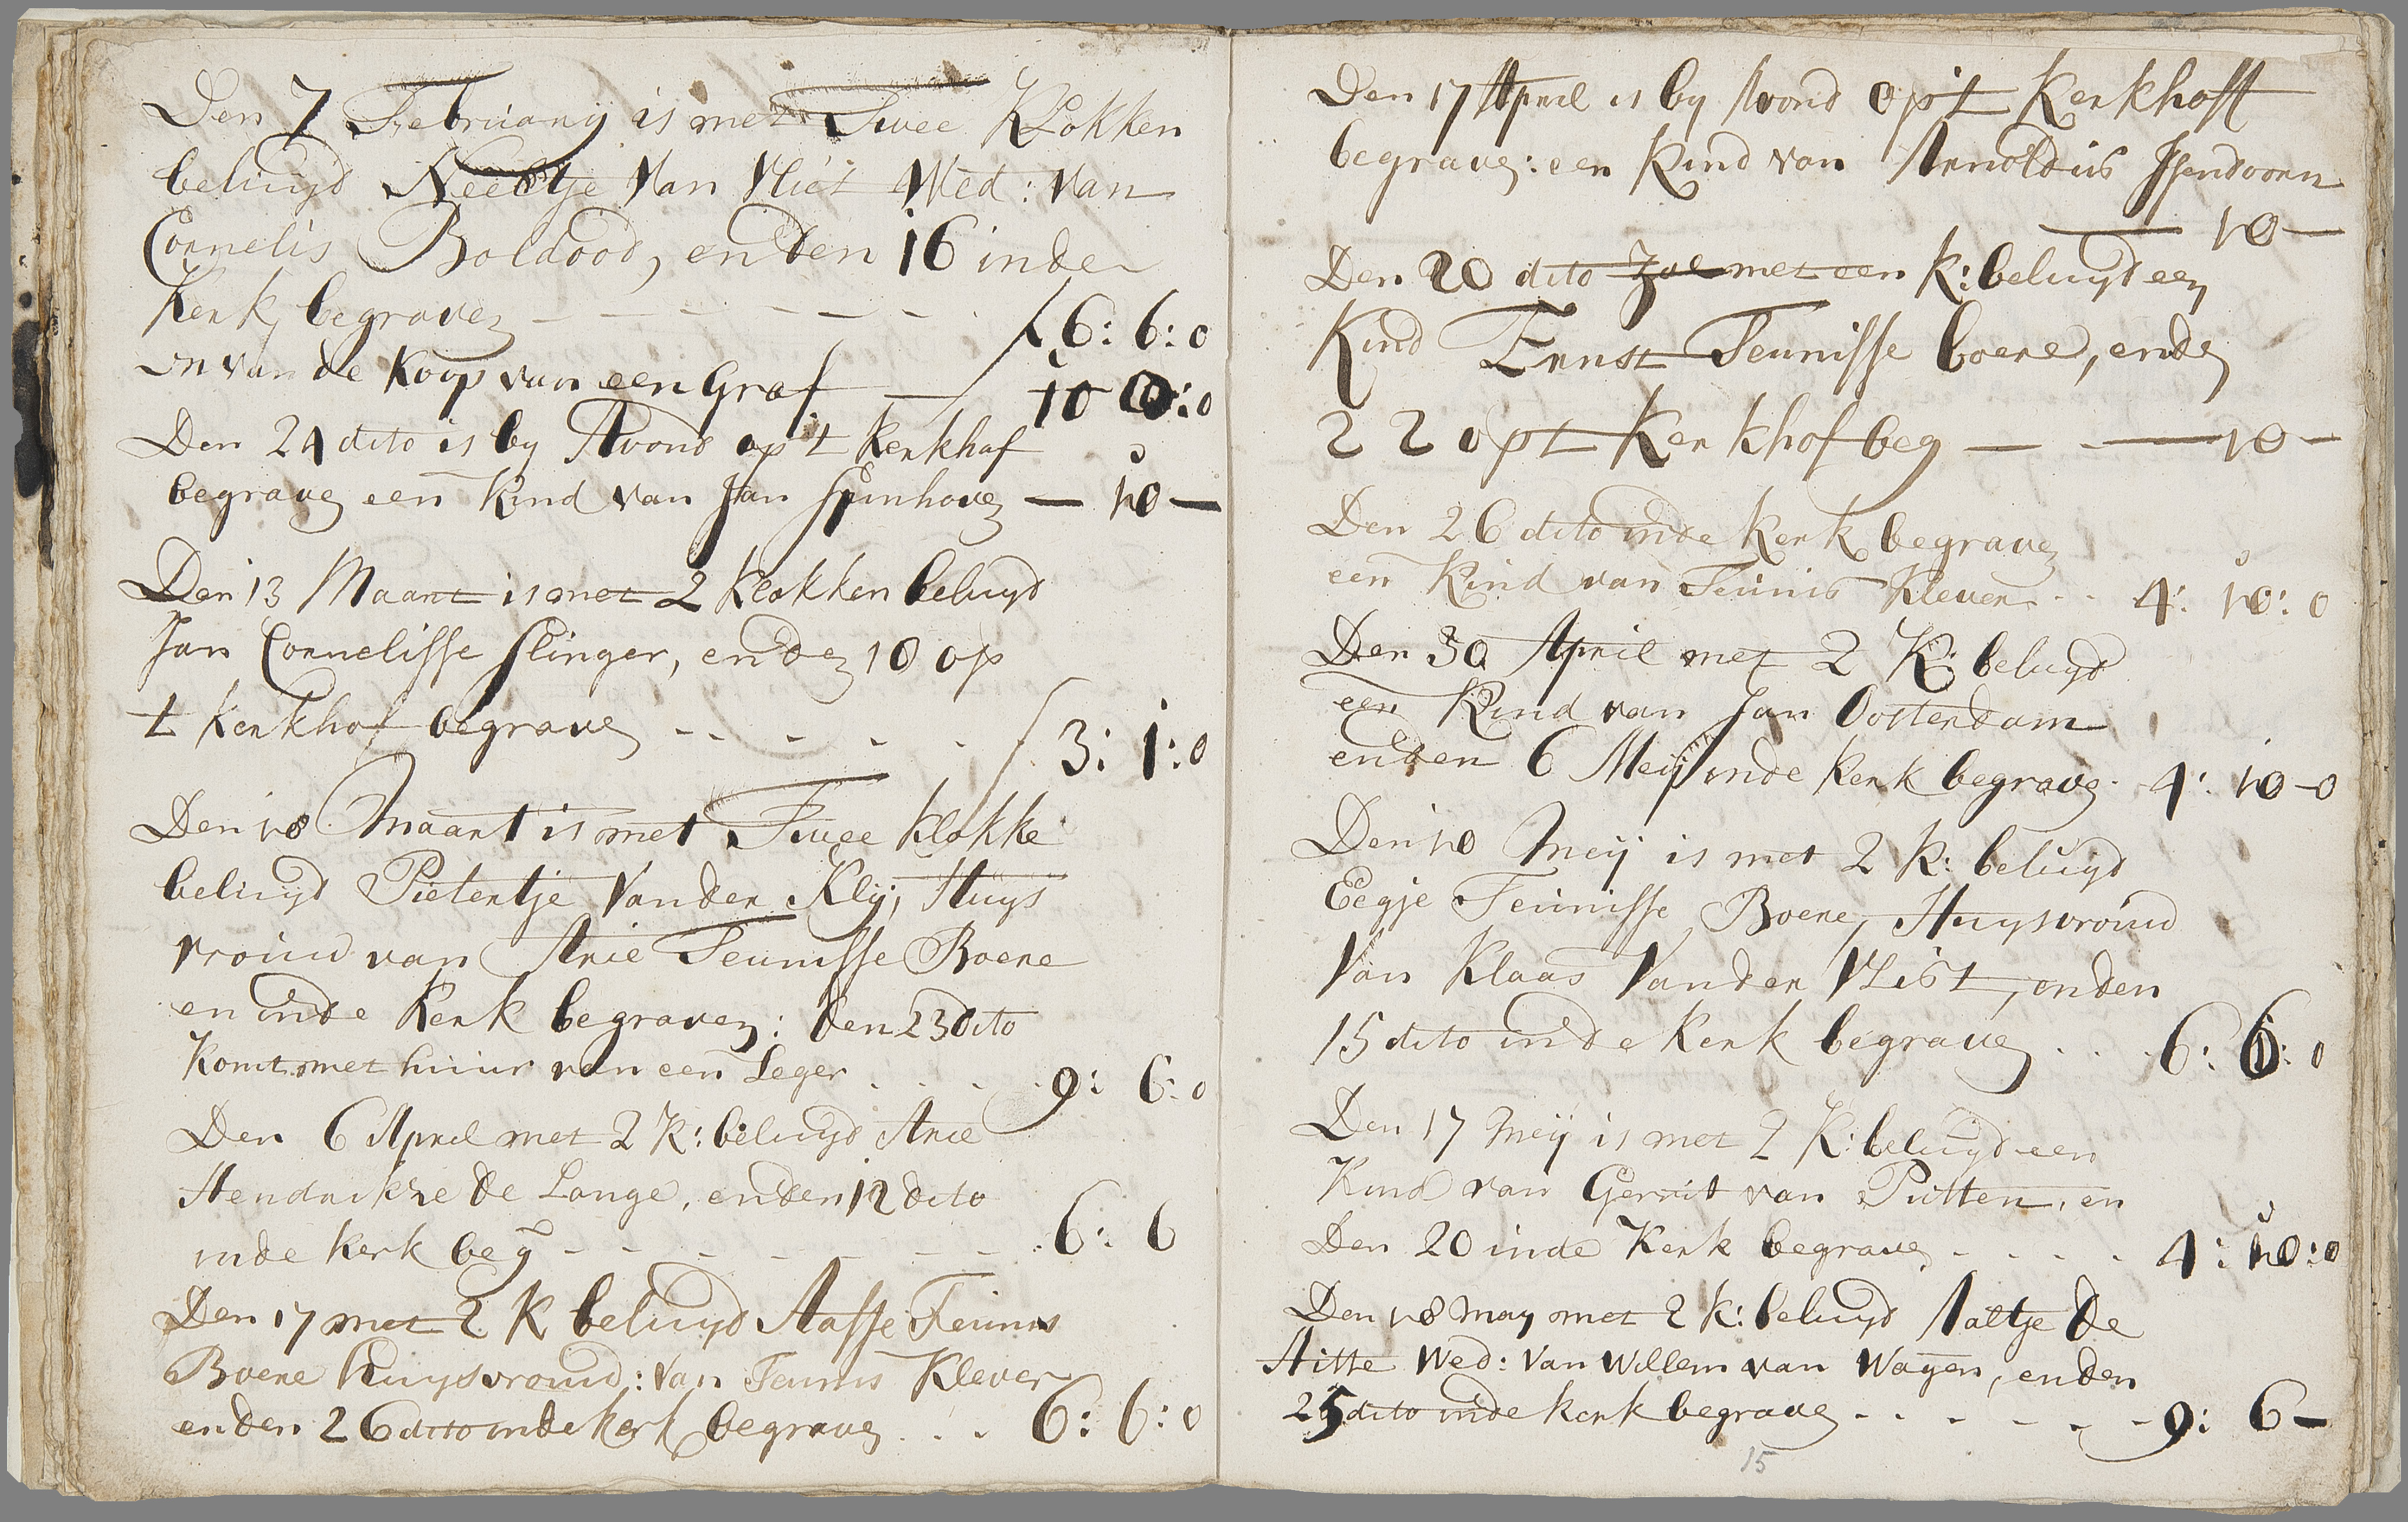 Den 7 February is met Twee Klokken
beluyd Neeltje Van Vliet Wed: van
Cornelis Boldood, en den 16 inde
Kerk begraven - - - - - - f 6: 6: 0
van de Koop van een Graf — 10 0:0
Den 24 dito is by Avond op 't Kerkhof
begraven een Kind van Jan Spinhoven — 10 —
Den 13 Maart is met 2 Klokken beluyd
Jan Cornelisse Slinger, en den 10 op
t Kerkhof begraven - - - - - f 3: 1: 0
Den 18 Maart is met Twee Klokke
beluyd Pietertje Vander Klij, Huys
vrouw van Arie Teunisse Boere
en inde Kerk begraven: den 23 dito
Komt met huur van een Leger . . . . 9: 6: 0
Den 6 April met 2 K: beluyd Arie
Hendrikze de Lange, en den 12 dito
inde Kerk beg - - - - - - - 6: 6
Den 17 met 2 K beluyd Aafje Teunis
Boere huysvrouw: van Teunis Klever
en den 26 dito inde Kerk begraven . . . 6: 6: 0
Den 17 April is by Avond op 't Kerkhoff
begraven: een Kind van Arnoldus Ysendoorn
— 10 —
Den 20 dito met een K: beluyd een
Kind Ernst Teunisse boere, en den
22 op t Kerkhof beg — - — 10 —
Den 26 dito inde Kerk begraven
een Kind van Teunis Klever . . 4: 10: 0
Den 30 April met 2 K: beluyd
een Kind van Jan Oosterdam
en den 6 Meij inde Kerk begraven. 4: 10 - 0
Den 10 Meij is met 2 K: beluyd
Eegje Teunisse Boere, Huysvrouw
Van Klaas Vander Vlist, en den
15 dito inde Kerk begraven . . . 6: 6: 0
Den 17 Meij is met 2 K: beluyd een
Kind van Gerrit van Putten, en
Den 20 inde Kerk begraven - . . . 4: 10: 0
Den 18 may met 2 K: beluyd Aaltje de
Hitte Wed: Van Willem van Wagen, en den
25 dito inde Kerk begraven - - - - - - 9: 6 —
15